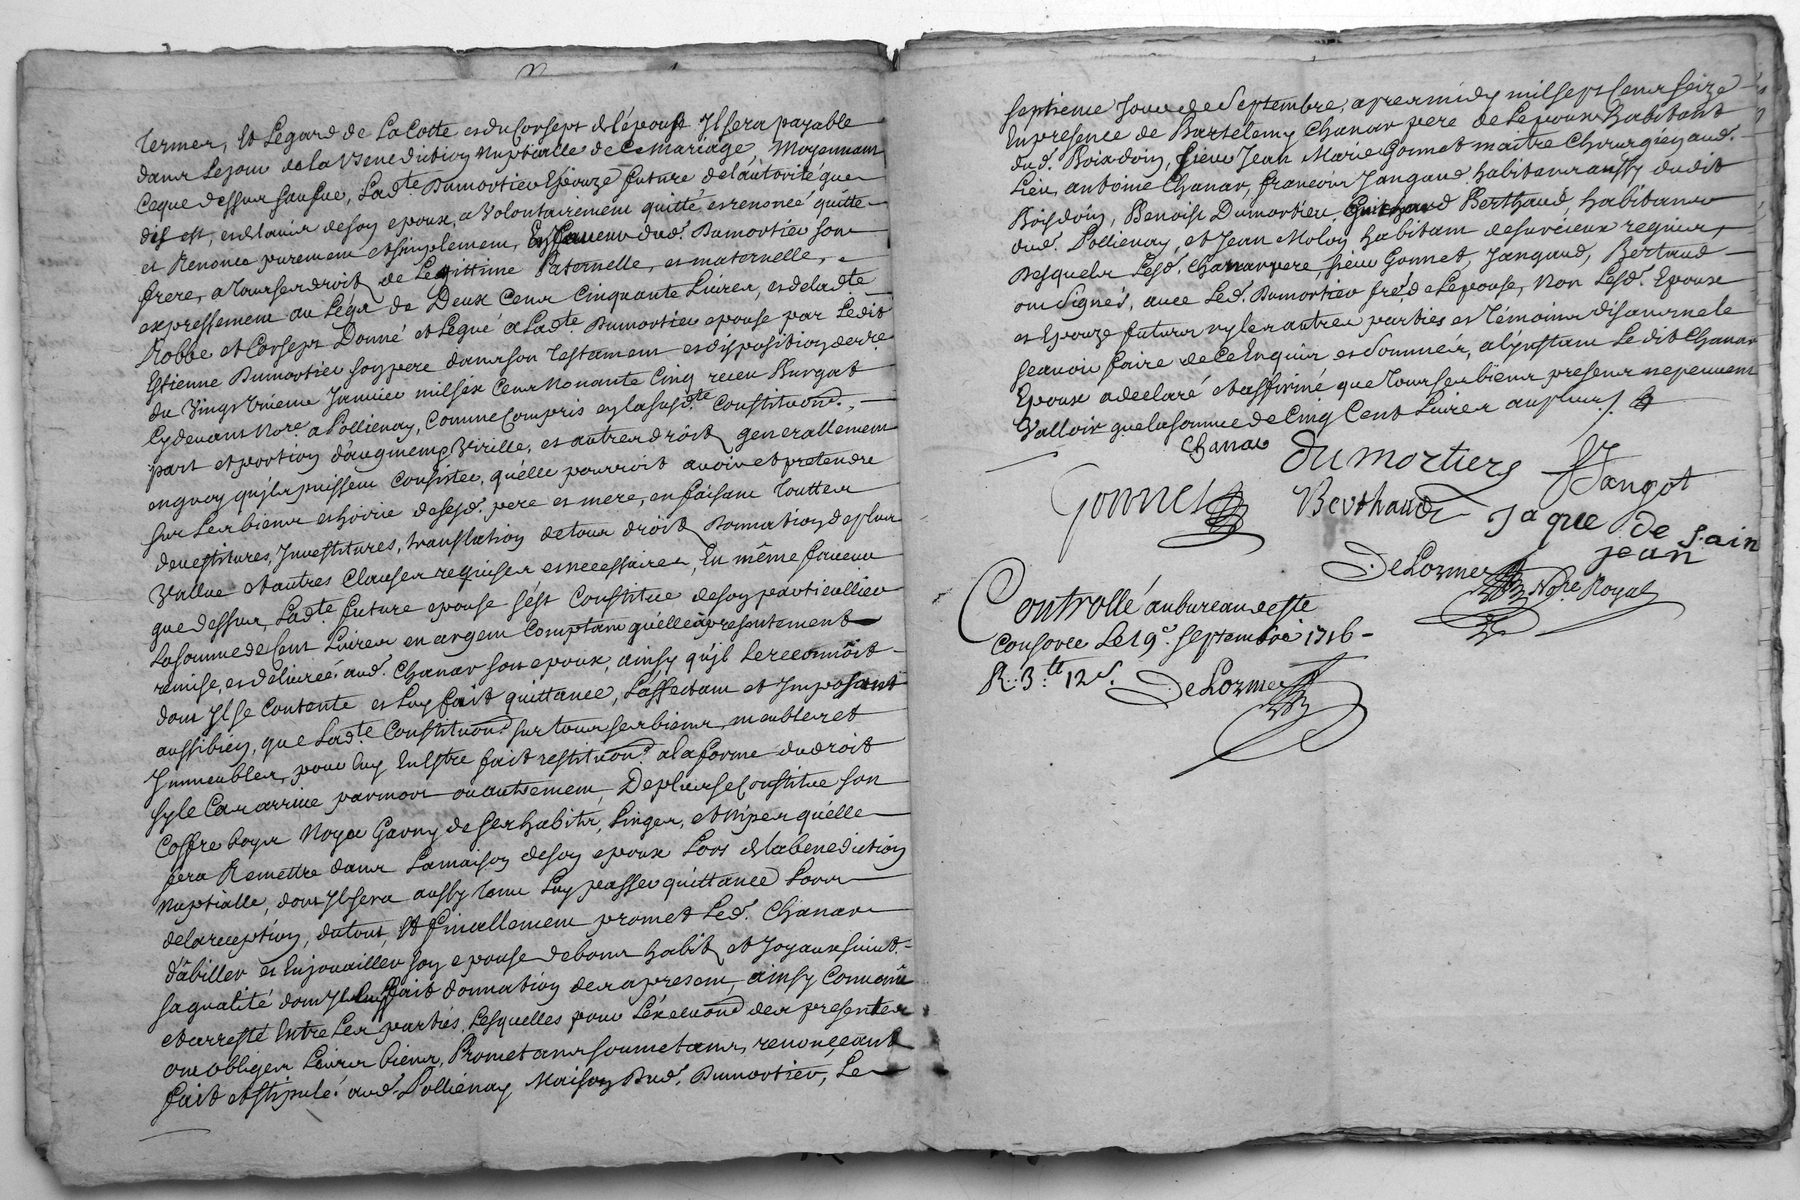 termes, Et Legard de La Cotte et du Corsept de l'épouse Il sera payable
dans Le jour de la Benediction Nuptialle de Ce mariage, Moyennant
Ceque dessus sausue, Lad.te Dumortier Epouze future de l'autorité que
dit est, et de l'avis de son epoux, a Volontairement quitté, et renoncé quitte
et Renonce purement et simplement, En faveur dud. Dumortier son
frere, a tous ses droits de Legittime Paternelle, et maternelle,
expressement au Légat de Deux Cens Cinquante Livres, et de la d.te
Robbe et Corsept Donné et Legué a Lad.te Dumortier epouse par Ledit
Estienne Dumortier son pere dans son Testament et disposition de dre
du Vingt trieme Janvier mil six Cens Nonante Cinq receu Burgat
Cy devant No.re a Pollienay, Comme Compris en la susd.te Constitution,
part et portion d'augment Virille, et autres droits generallement
en quoy qu'ils puissent Consister, qu'elle pourroit avoir et pretendre
sur Les biens et hoirie de sesd. pere et mere, en faisant touttes
devestitures, Investitures, translation de tous droits Donnation de plus
Vallue et autres Clauses requises et necessaires, En même faveur
que dessus, Lad.te future epouse s'est Constitué de son particullier
La somme de Cent Livres en argent Comptant qu'elle à presentement
remise, et delivrée aud. Chanas son epoux, ainsy qu'il Le reconnoit
dont Il se Contente et Luy fait quittance, L'affectant et Imposant
aussi bien, que Lad.te Constituon sur tous ses biens, meubles et
Immeubles, pour luy En Estre fait restituon a la forme du droit
sy le Cas arrive par mort ou autrement, De plus se Constitue son
Coffre boys Noyer Garny de ses habits, Linges, et Nipes qu'elle
fera Remettre dans La maison de son epoux Lors de la benediction
Nuptialle, dont Il sera aussy tenu Luy passer quittance Lors
de la reception, du tout, Et finallement promet Led. Chanas
d'abiller et Enjouailler son epouse de bons habits et Joyaux suivt.
sa qualité dont Il Luy fait donnation des a present, ainsy Convenu
et arresté Entre Les parties, Lesquelles pour L'execuon des presentes
ont obligés Leurs biens, Promettans soumettans, renonçeant
fait et stipulé aud. Pollienay Maison Dud. Dumortier, Le
septieme Jour de Septembre, apres midy mil sept Cens seize
En presence de Bartelemy Chanas pere de Lepoux habitant
dud. Boisdoin, sieur Jean Marie Gonnet maitre Chirurgien aud.
Lieu, antoine Chanas, francois Jangaud habitans aussy dudit
Boisdoin, Benoist Dumortier, Berthaud, habitans
dud. Pollienay, et Jean Molon habitant de Survéieux requis,
Desquels Lesd. Chanas pere, sieur Gonnet, Jangaud, Bertaud
ont signés, avec Led. Dumortier fre. de Lepouse, Non Lesd. Epoux
et Epouze futurs ny les autres parties et témoins disant ne le
scavoir faire de Ce Enquis et Sommés, a l'instant Le dit Chanas
Epoux a declaré et affirmé que tous ses biens presens ne peuvent
Valloir que la somme de Cinq Cent Livres au plus
Chanas
Dumortiers
J Jangot
Gonnet
Berthaud
Jaque de sain
jean
DeLorme
No.re Royal
Controllé au bureau de ste
Consorce Le 19.e septembre 1716
R. 3.tt 12 s.
DeLorme